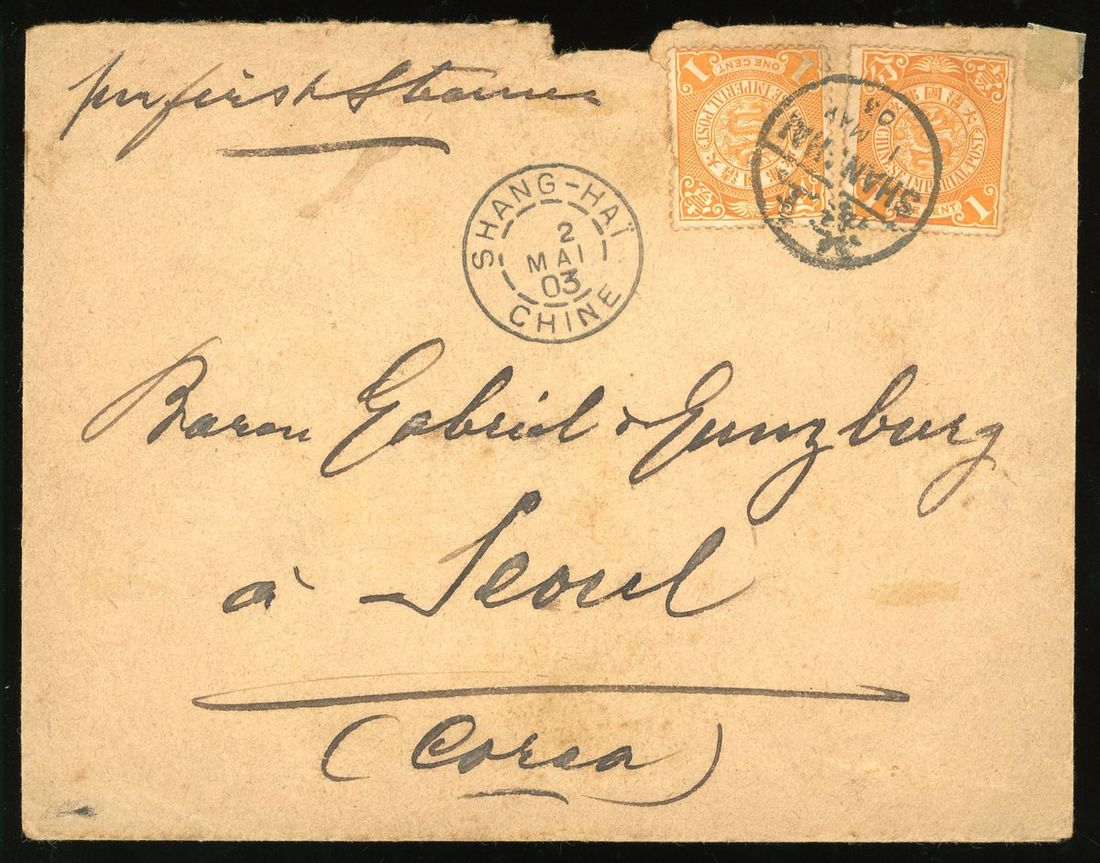 per first Steamer
1
ONE CENT
1
IMPERIAL POST
1
CENT
SHANGHAI
1
MAY
03
SHANG-HAÏ
2
MAI
03
CHINE
Baron Gabriel de Gunzburg
à Seoul
(Corea)